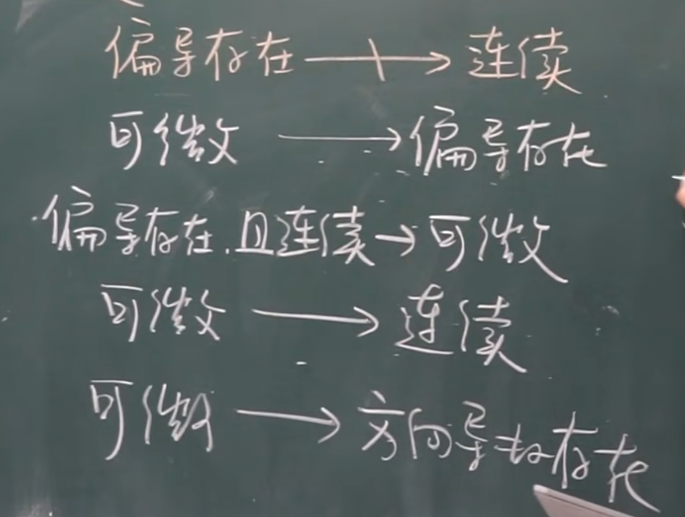 偏导存在 ↛ 连续
可微 → 偏导存在
偏导存在且连续→可微
可微 → 连续
可微 → 方向导数存在